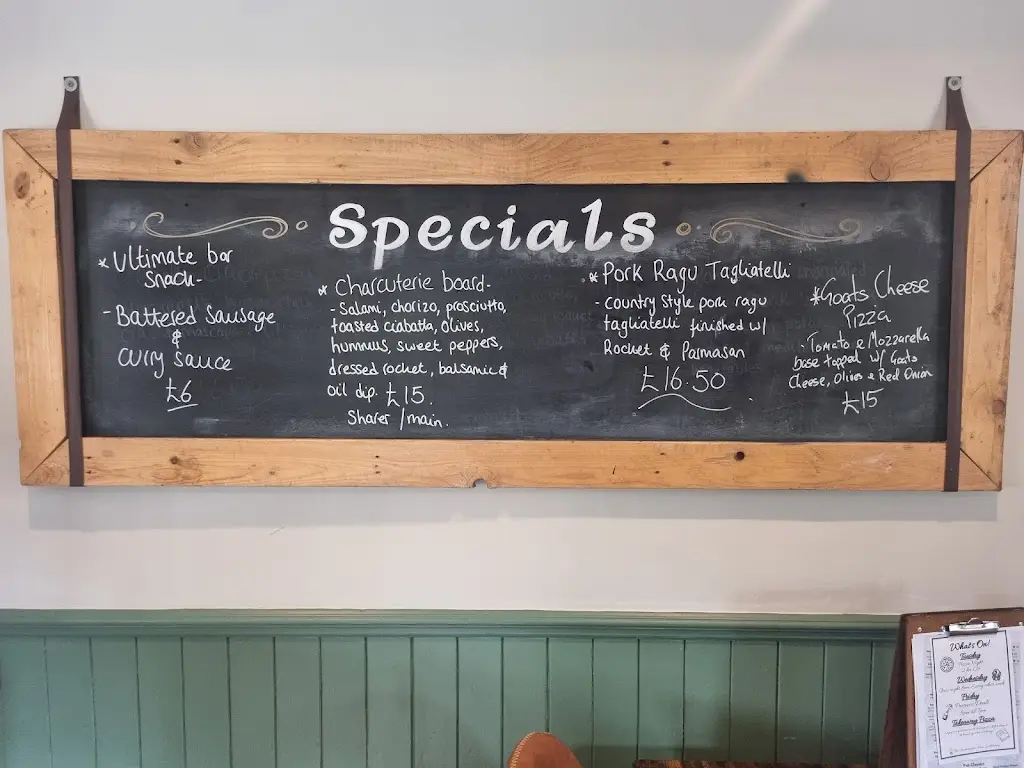 Specials
* Ultimate bar
Snack-
- Battered Sausage
&
Curry Sauce
£6
* Charcuterie board-
- Salami, chorizo, prosciutto,
toasted ciabatta, olives,
hummus, sweet peppers,
dressed rocket, balsamic &
oil dip. £15.
Sharer / main.
* Pork Ragu Tagliatelli
- country style pork ragu
tagliatelli finished w/
Rocket & Parmasan
£16.50
* Goats Cheese
Pizza
- Tomato & Mozzarella
base topped w/ Goats
Cheese, Olives & Red Onion
£15
What's On!
Tuesday
Wednesday
Friday
Takeaway Pizza